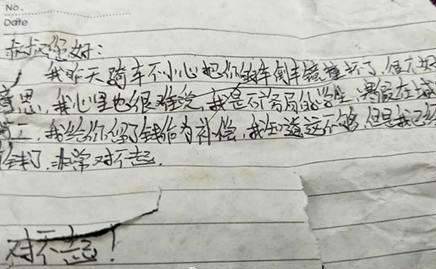 No.
Date
叔叔您好：
我昨天骑车不小心把你的车倒车镜撞坏了，
意思，我心里也很难受，我是不 学生，寒假在
，我给你 了钱作为补偿，我知道这不够，但是我
钱了，非常对不起。
对不起！